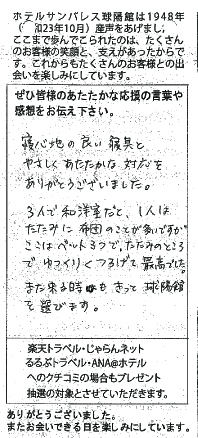 ホテルサンパレス球陽館は1948年
（　2023年10月）産声をあげまし
ここまで歩んでこられたのは、たくさん
のお客様の笑顔と、支えがあったからで
す。これからもたくさんのお客様との出
会いを楽しみにしています。
ぜひ皆様のあたたかな応援の言葉や
感想をお伝え下さい。
寝心地の良い寝具と
やさしくあたたかな対応を
ありがとうございました。
3人で和洋室だと、1人は
たたみに布団のことが多いですが
ここはベット3つで、たたみのところ
でゆっくりくつろげて最高でした。
また来る時もきって球陽館
を選びます。
楽天トラベル・じゃらんネット
るるぶトラベル・ANA@ホテル
へのクチコミの場合もプレゼント
抽選の対象とさせていただきます。
ありがとうございました。
またお会いできる日を楽しみにしています。